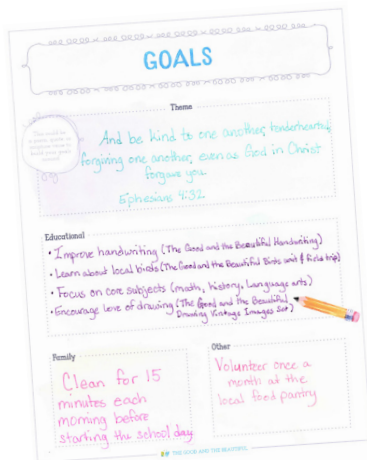 GOALS
Theme
This could be
a poem, quote, or
scripture verse to
build your goals
around!
And be kind to one another, tenderhearted,
forgiving one another, even as God in Christ
forgave you.
Ephesians 4:32
Educational
• Improve handwriting (The Good and the Beautiful Handwriting)
• Learn about local birds (The Good and the Beautiful Birds unit & field trip)
• Focus on core subjects (math, history, language arts)
• Encourage love of drawing (The Good and the Beautiful
Drawing Vintage Images Set)
Family
Clean for 15
minutes each
morning before
starting the school day
Other
Volunteer once a
month at the
local food pantry
THE GOOD AND THE BEAUTIFUL